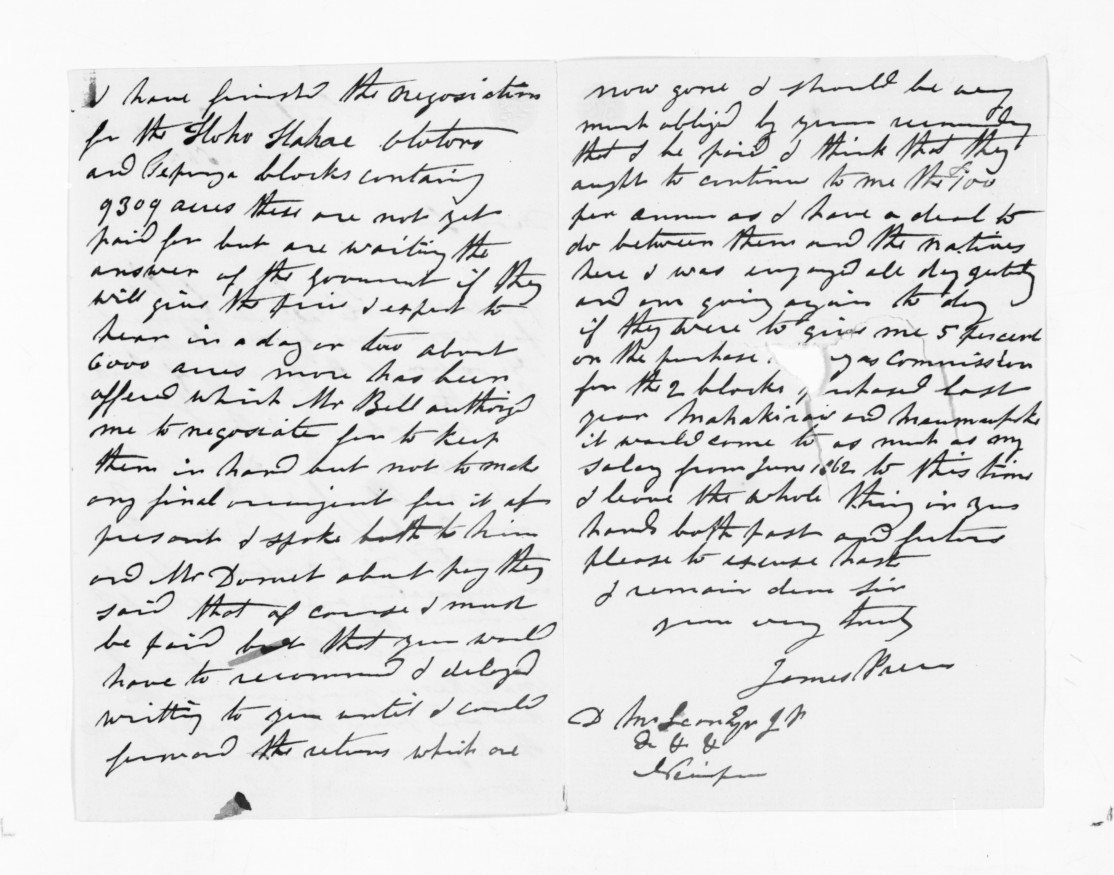 I have finishd the negosiation
for the Hoho Hahae Ototoro
and Pepenga blocks containg
9309 acres these are not yet
paid for but are waiting the
answer of the goverment if they
will give the price I expect to
hear in a day or two about
6000 acres more has been
offered which Mr Bell authorizd
me to negosiate for to keep
them in hand but not to make
any final arrangment for it at
present I spoke both to him
and Mr Domet about pay they
said that of course I must
be paid but that you would
have to recommend I delayed
writting to you until I could
forward the returns which are
now gone I should be very
much obliged by your recomending
that I be paid I think that they
aught to continue to me the £100
per annum as I have a deal to
do between them and the natives
here I was engaged all day yesterday
and am going again to day
if they were to give me 5 percent
on the purchase as Commission
for the 2 blocks purchased last
year Mahakirau and
it would come to as much as my
salary from June 1862 to this time
I leave the whole thing in your
hands both past and future
please to excuse haste
I remain dear Sir
your very truly
James Preece
D McLean Esqr J P
&c & &
Napier